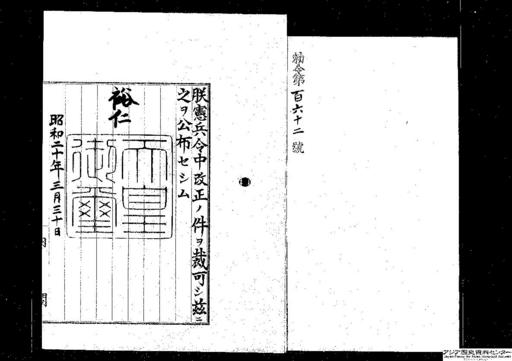 勅令第百六十二號
朕憲兵令中改正ノ件ヲ裁可シ茲ニ
之ヲ公布セシム
裕仁
天皇御璽
昭和二十年三月三十日
内閣
アジア歴史資料センター